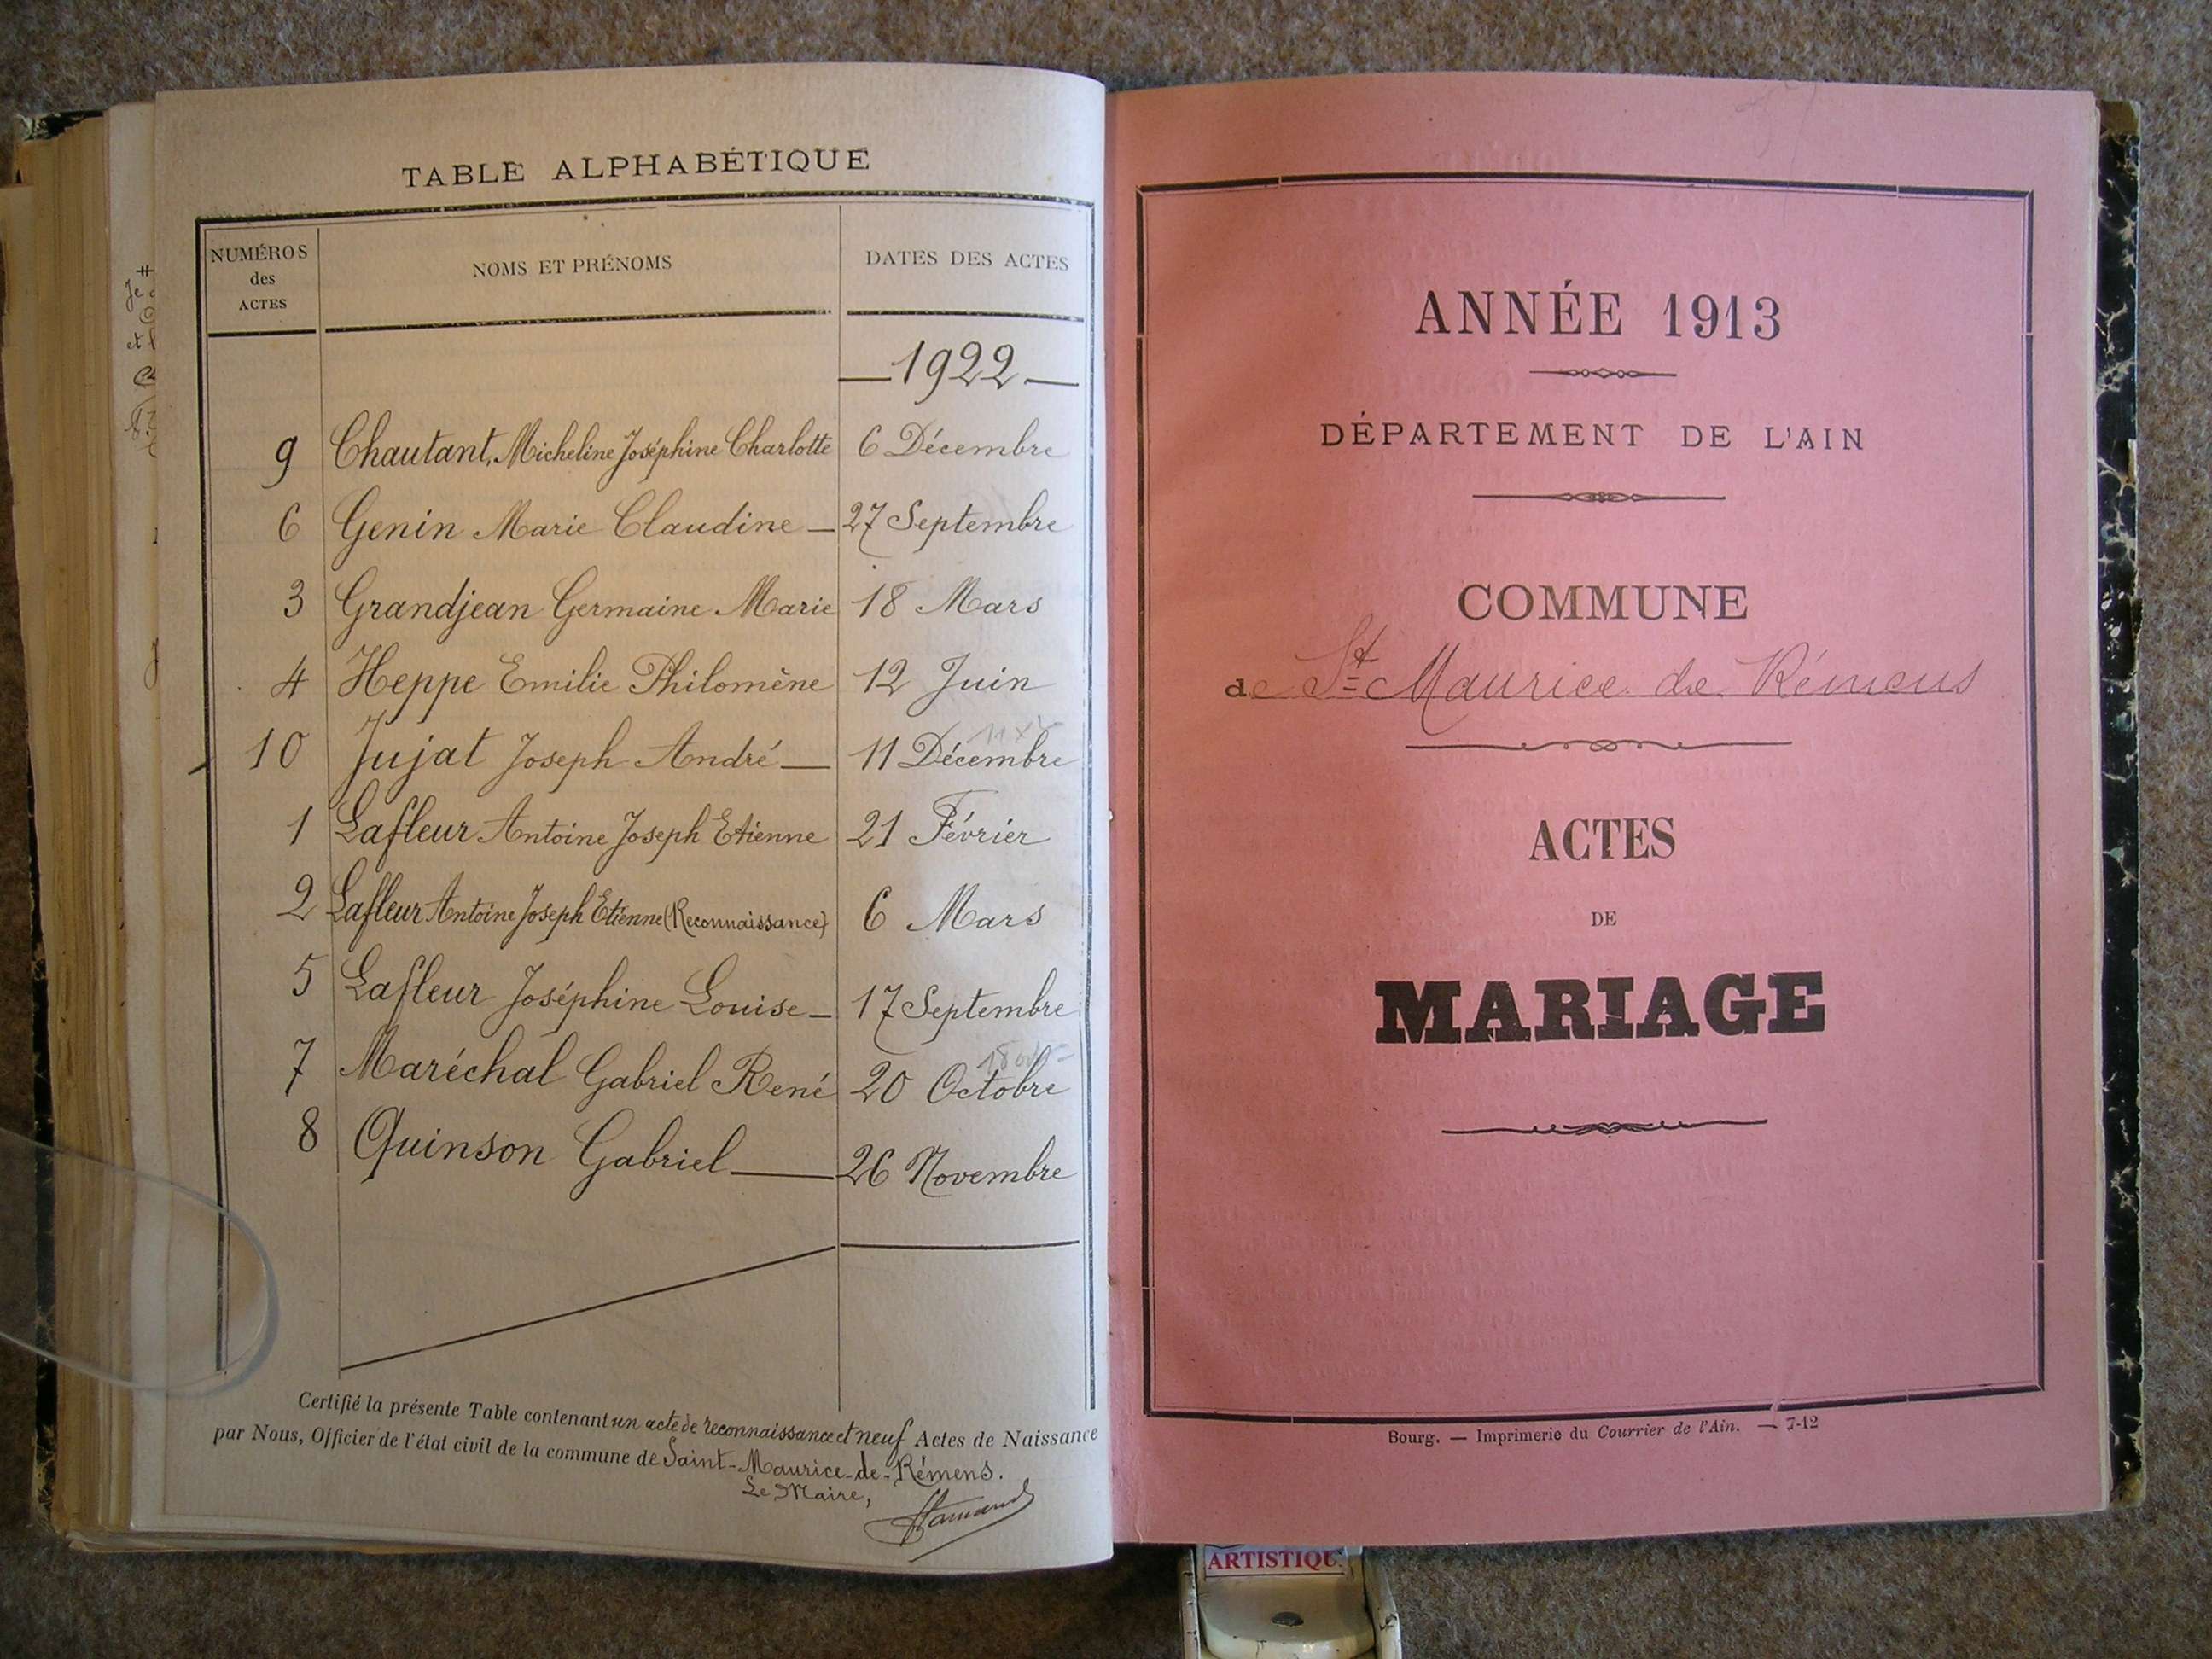 TABLE ALPHABÉTIQUE
NUMÉROS
des
ACTES
NOMS ET PRÉNOMS
DATES DES ACTES
1922
9 Chautant, Micheline Joséphine Charlotte 6 Décembre
6 Genin Marie Claudine 27 Septembre
3 Grandjean Germaine Marie 18 Mars
4 Heppe Emilie Philomène 12 Juin
10 Jujat Joseph André 11 Décembre
1 Lafleur Antoine Joseph Etienne 21 Février
2 Lafleur Antoine Joseph Etienne (Reconnaissance) 6 Mars
5 Lafleur Joséphine Louise 17 Septembre
7 Maréchal Gabriel René 20 Octobre
8 Quinson Gabriel 26 Novembre
Certifié la présente Table contenant un acte de reconnaissance et neuf Actes de Naissance
par Nous, Officier de l'état civil de la commune de Saint-Maurice-de-Rémens.
Le Maire,
ANNÉE 1913
DÉPARTEMENT DE L'AIN
COMMUNE
de St Maurice de Rémens
ACTES
DE
MARIAGE
Bourg. — Imprimerie du Courrier de l'Ain. — 7-12
ARTISTIQU